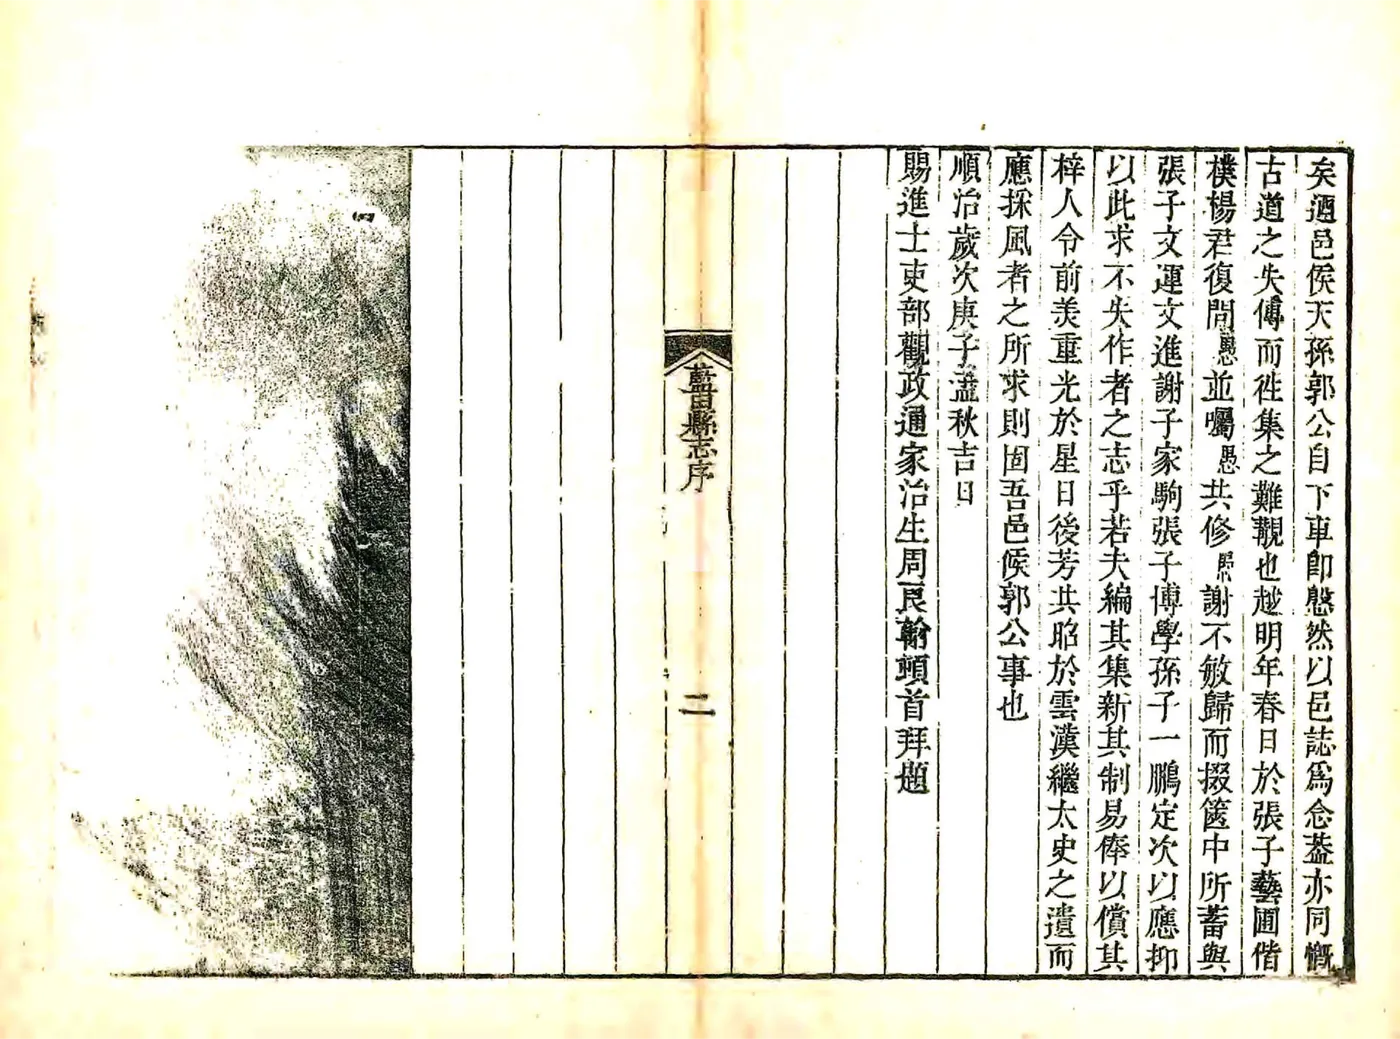 矣邇邑侯天孫郭公自下車卽慇然以邑誌爲念葢亦同慨
古道之失傳而徃集之難覩也越明年春日於張子藝圃偕
樸楊君復問愚並囑愚共修愚謝不敏歸而掇篋中所蓄與
張子文運文進謝子家駒張子傅學孫子一鵬定次以應抑
以此求不失作者之志乎若夫編其集新其制易俸以償其
梓人令前羙重光於星日後芳共昭於雲漢繼太史之遺而
應採風者之所求則固吾邑侯郭公事也
順治歲次庚子盡秋吉日
賜進士吏部觀政通家治生周民翰頓首拜題
藍田縣志序
二